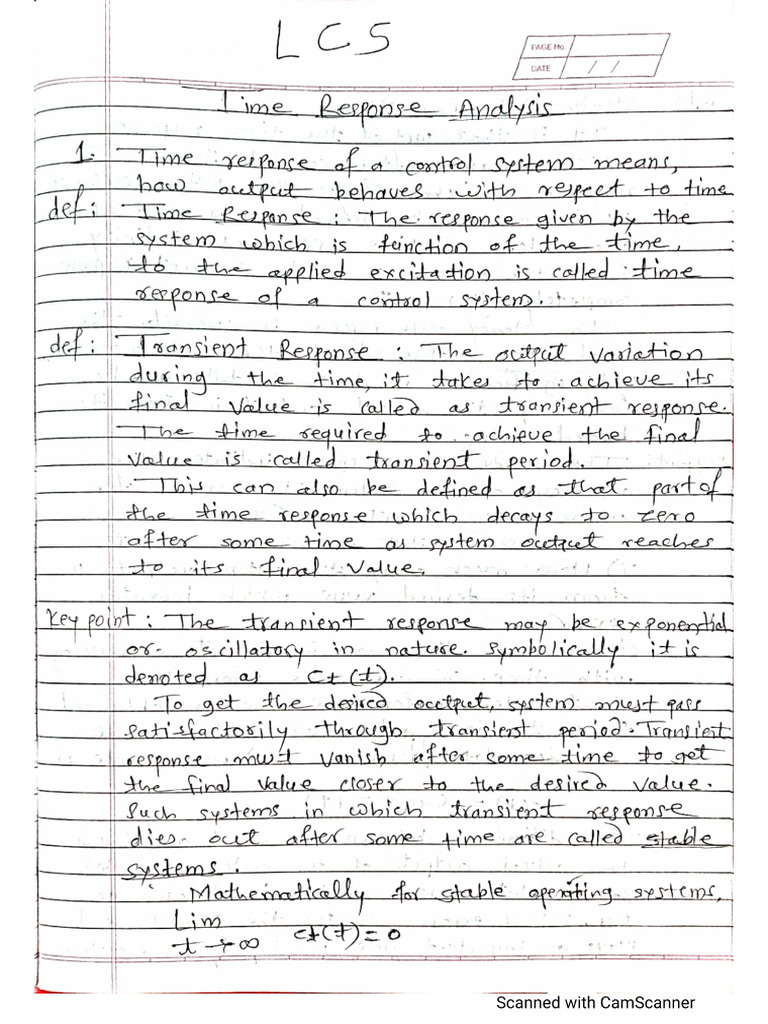 LCS
PAGE No.
DATE / /
Time Response Analysis
1. Time response of a control system means,
how output behaves with respect to time
def: Time Response: The response given by the
system which is function of the time,
to the applied excitation is called time
response of a control system.
def: Transient Response: The output variation
during the time, it takes to achieve its
final value is called as transient response.
The time required to achieve the final
value is called transient period.
This can also be defined as that part of
the time response which decays to zero
after some time as system output reaches
to its final value.
Key point: The transient response may be exponential
or oscillatory in nature. Symbolically it is
denoted as Ct(t).
To get the desired output, system must pass
satisfactorily through transient period. Transient
response must vanish after some time to get
the final value closer to the desired value.
Such systems in which transient response
dies out after some time are called stable
systems.
Mathematically for stable operating systems,
Lim
t→∞ Ct(t)=0
Scanned with CamScanner